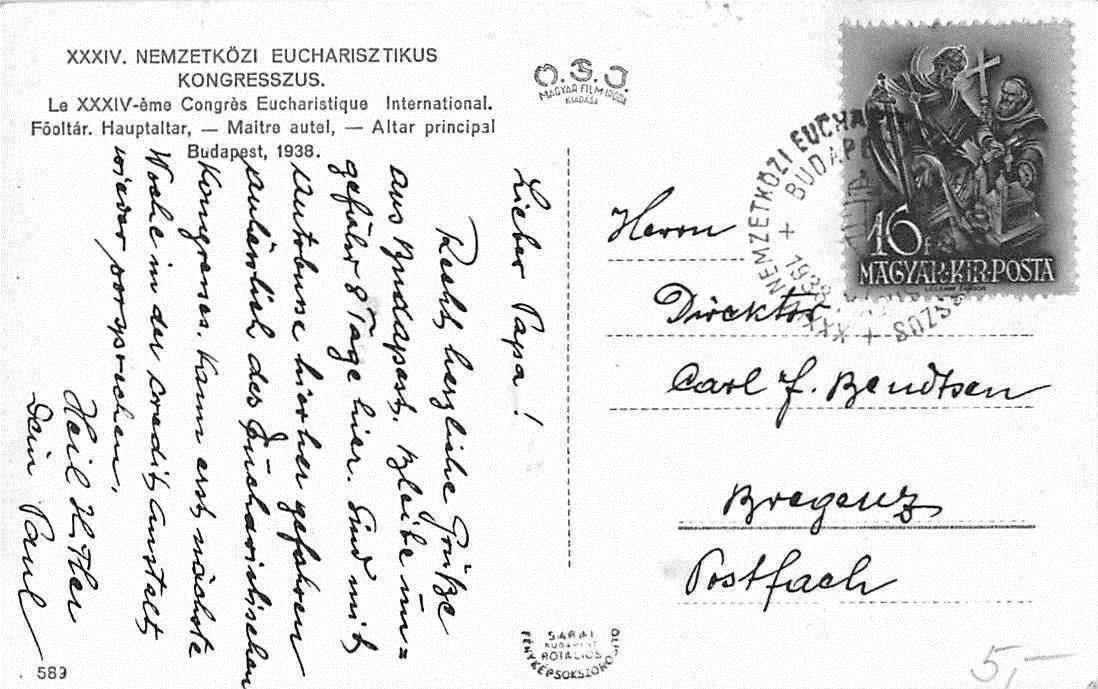 XXXIV. NEMZETKÖZI EUCHARISZTIKUS
KONGRESSZUS.
Le XXXIV-ème Congrès Eucharistique International.
Főoltár. Hauptaltar, — Maitre autel, — Altar principal
Budapest, 1938.
O.S.J.
MAGYAR FILM IRODA
KIADÁSA
Lieber Papa!
Recht herzliche Grüße
aus Budapest. Bleibe un=
gefähr 8 Tage hier. Sind mit
Autobusse hierher gefahren
anlässlich des Eucharistischen
Kongresses. Kann erst nächste
Woche in der Creditanstalt
wieder vorsprechen.
Heil Hitler
Dein Paul
589
16 f
MAGYAR·KIR·POSTA
XXXIV NEMZETKÖZI EUCHARI
BUDAPEST
1938
Herrn
Direktor
Carl F. Bendtsen
Bregenz
Postfach
BUDAPEST
ROTÁCIÓS
FÉNYKÉPSOKSZOROSÍTÓ
5,—